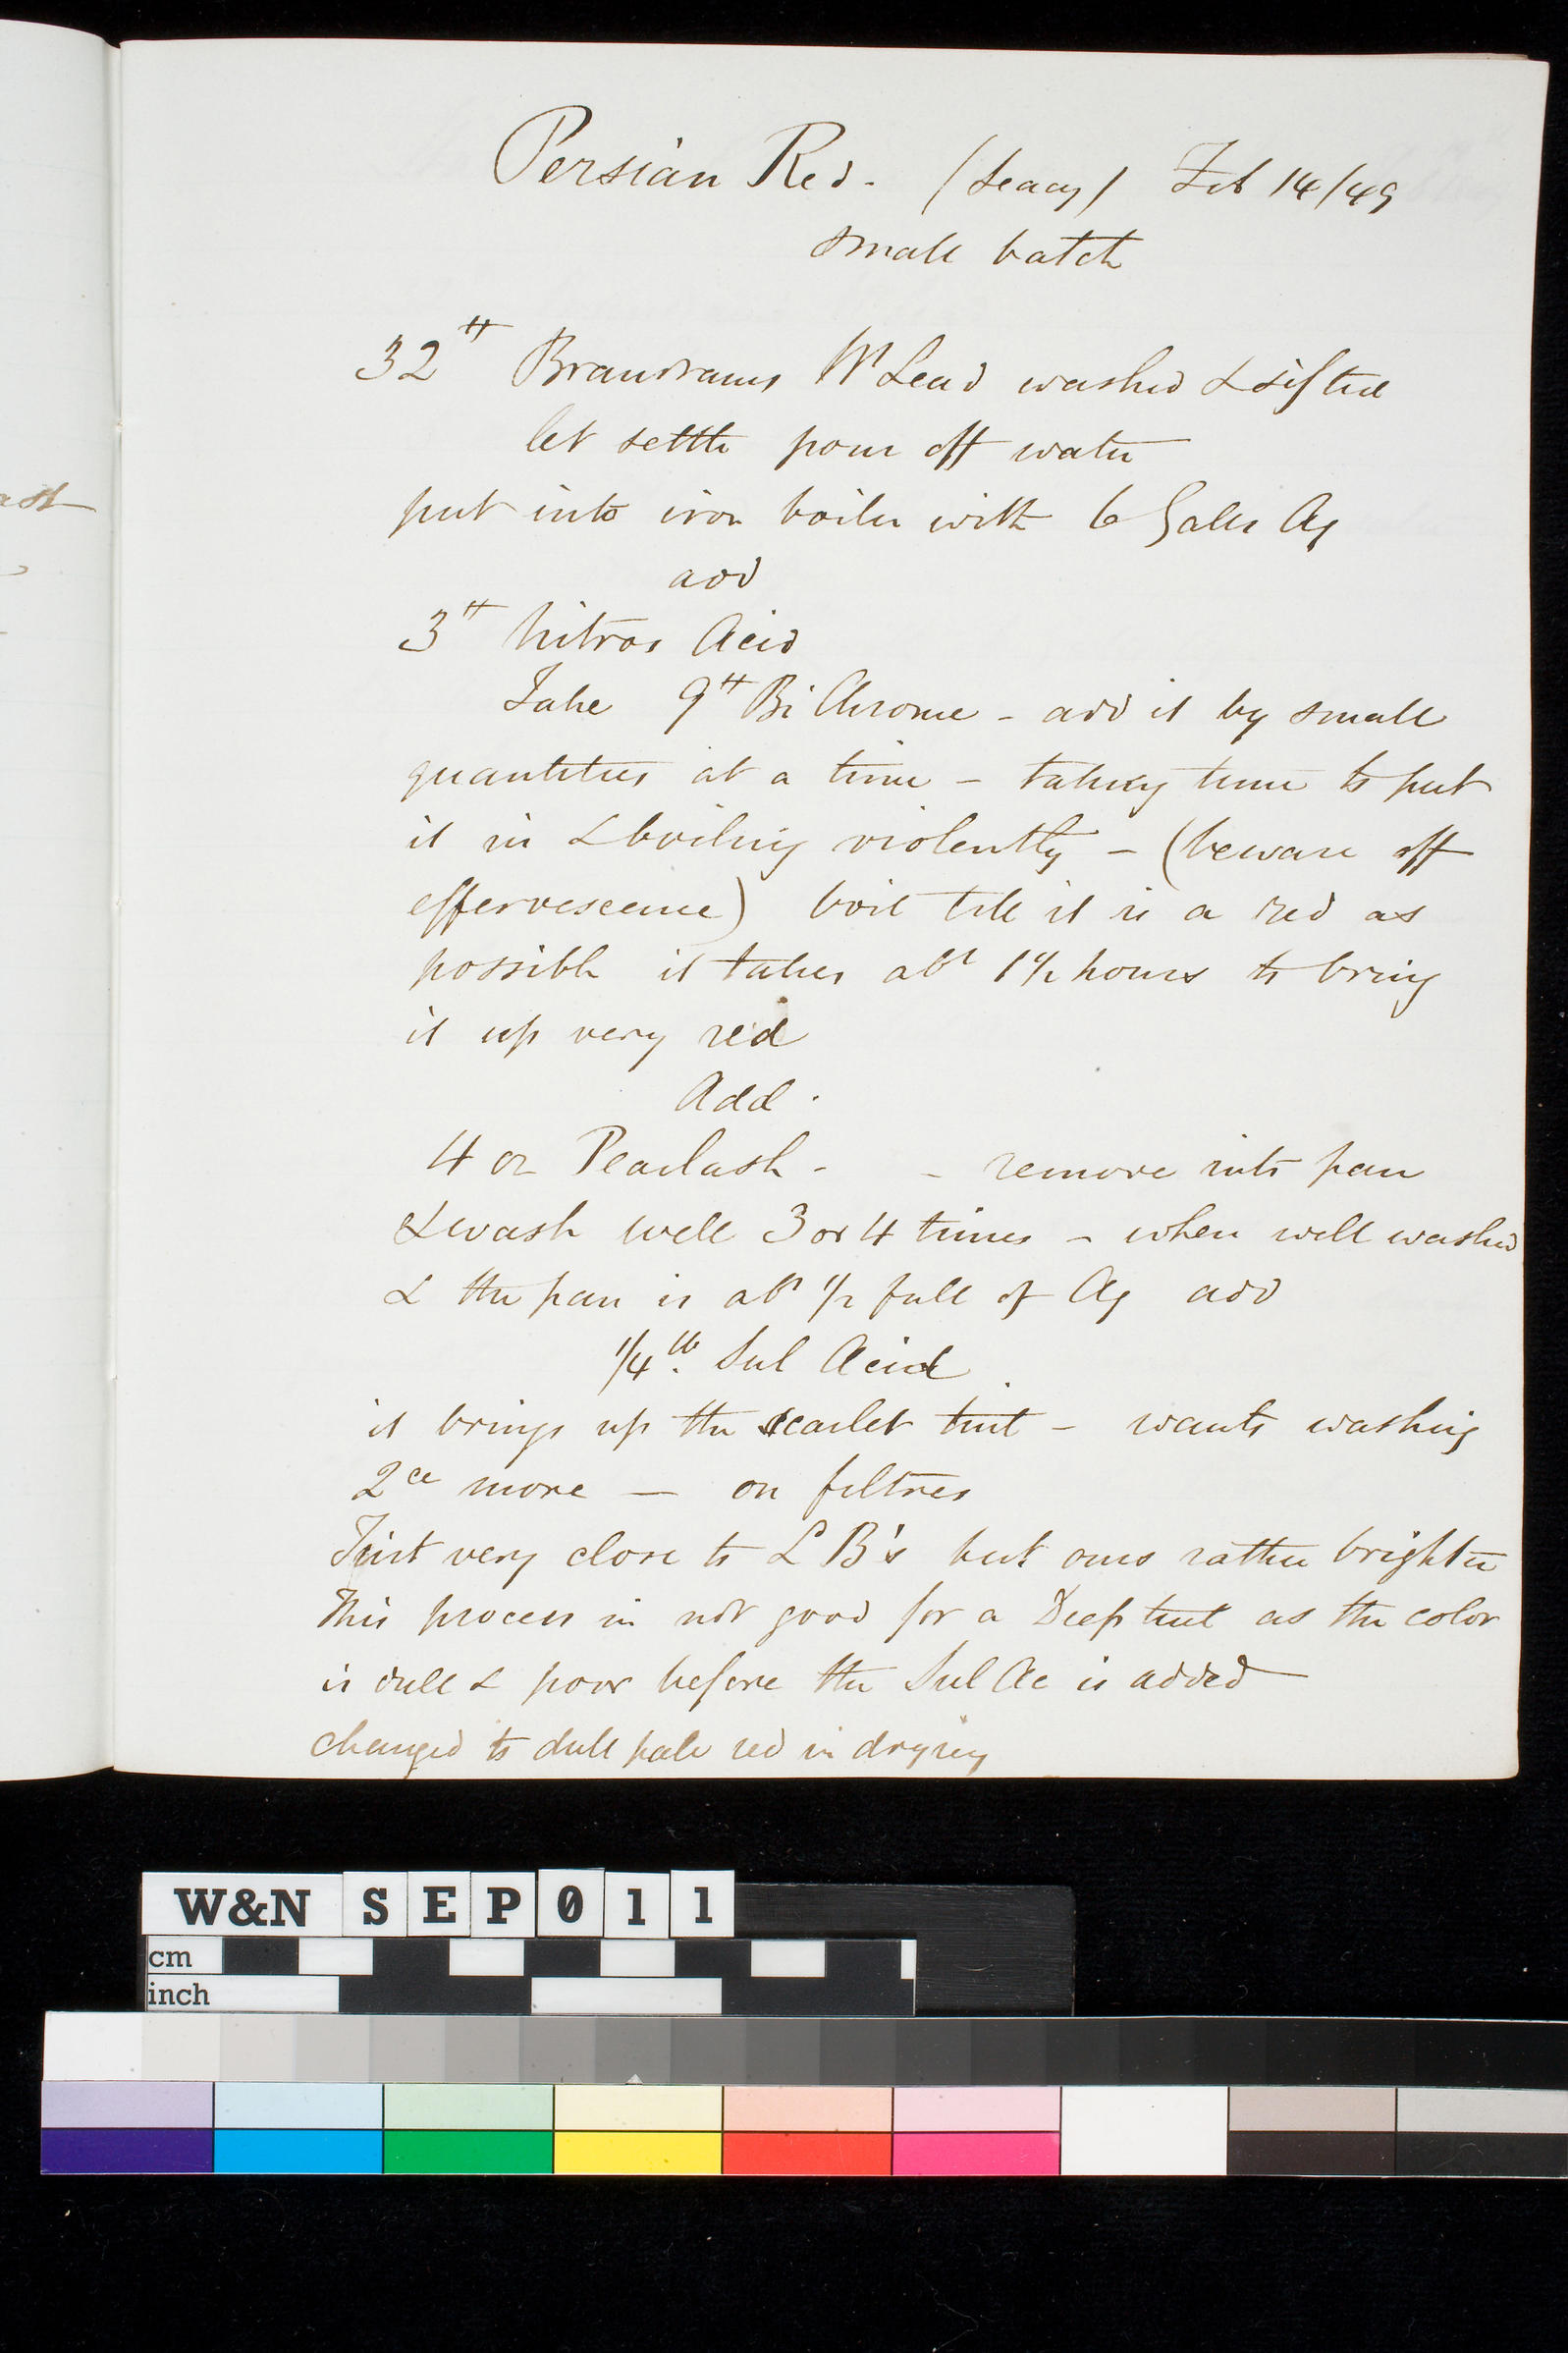 Persian Red. (Seacy) Feb 14/49
small batch
32 # Brandrams W Lead washed & sifted
let settle pour off water
put into iron boiler with 6 Galls Aq
add
3 # Nitros Acid
Take 9 # Bi Chrome - add it by small
quantities at a time - taking time to put
it in & boiling violently - (beware off
effervescence) boil till it is a red as
possible it takes abt 1 1/2 hours to bring
it up very red
Add.
4 oz Pearlash - - remove into pan
& wash well 3 or 4 times - when well washed
& the pan is abt 1/2 full of Aq add
1/4 lb. Sul Acid
it brings up the scarlet tint - wants washing
2ce more - on filtres
Tint very close to L B's but ours rather brighter
This process is not good for a Deep tint as the color
is dull & poor before the Sul Ac is added
changed to dull pale red in drying
ast
W&N SEP011
cm
inch